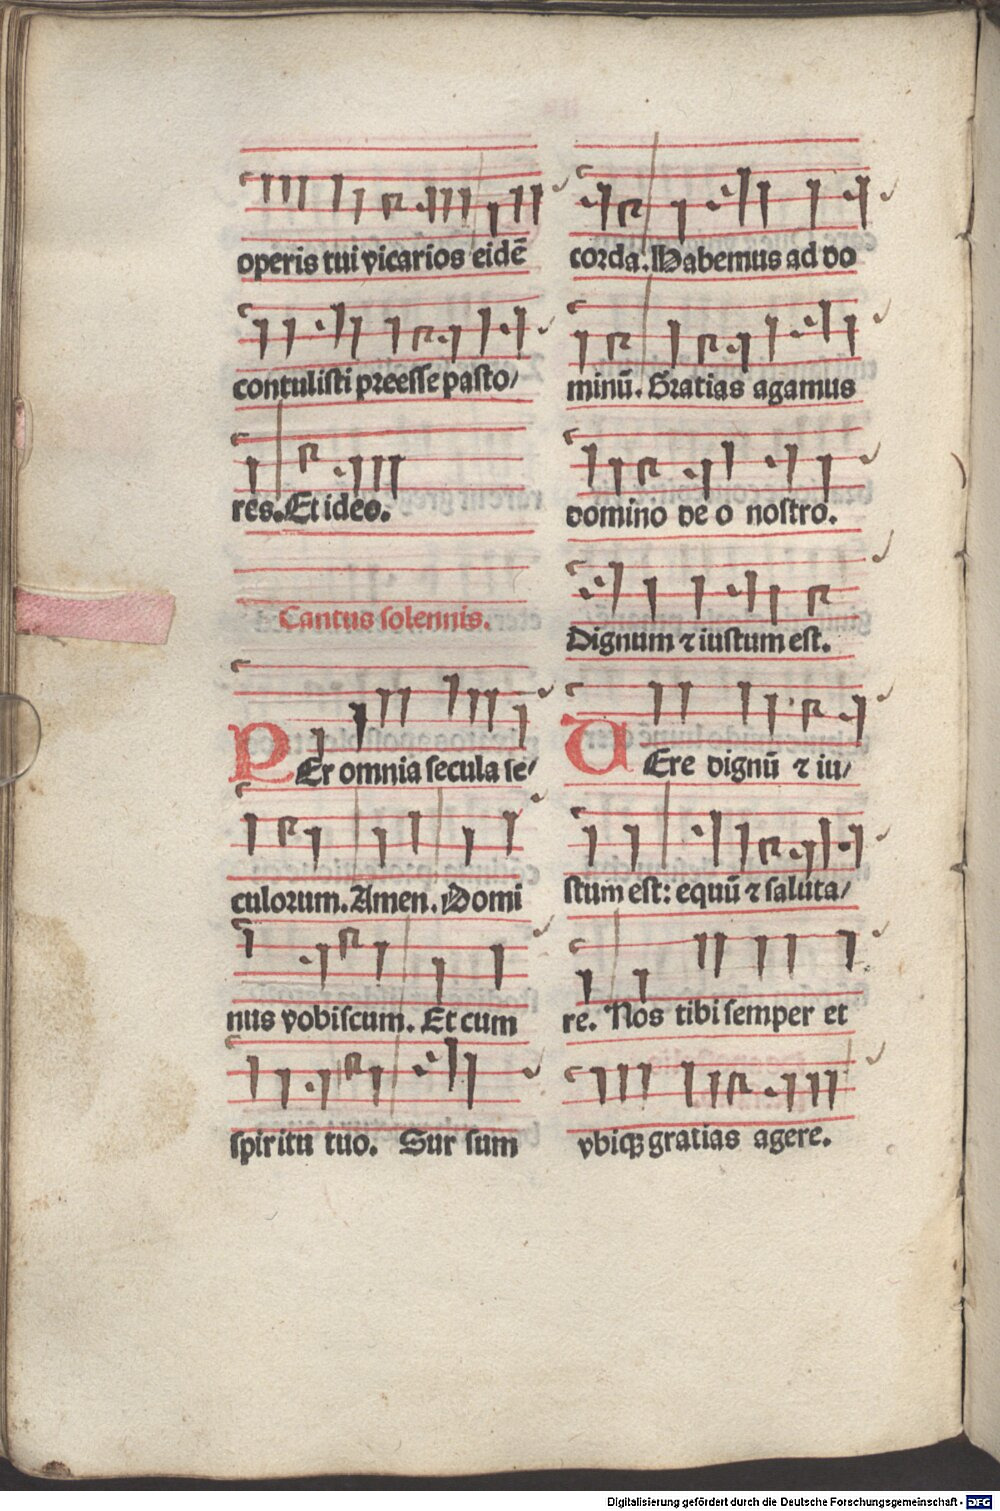 operis tui vicarios eidē
contulisti preesse pasto/
res. Et ideo.
Cantus solennis.
PEr omnia secula se/
culorum. Amen. Domi
nus vobiscum. Et cum
spiritu tuo. Sur sum
corda. Habemus ad do
minū. Gratias agamus
domino de o nostro.
Dignum ⁊ iustum est.
UEre dignū ⁊ iu/
stum est: equū ⁊ saluta/
re. Nos tibi semper et
vbiqꝫ gratias agere.
Digitalisierung gefördert durch die Deutsche Forschungsgemeinschaft - DFG